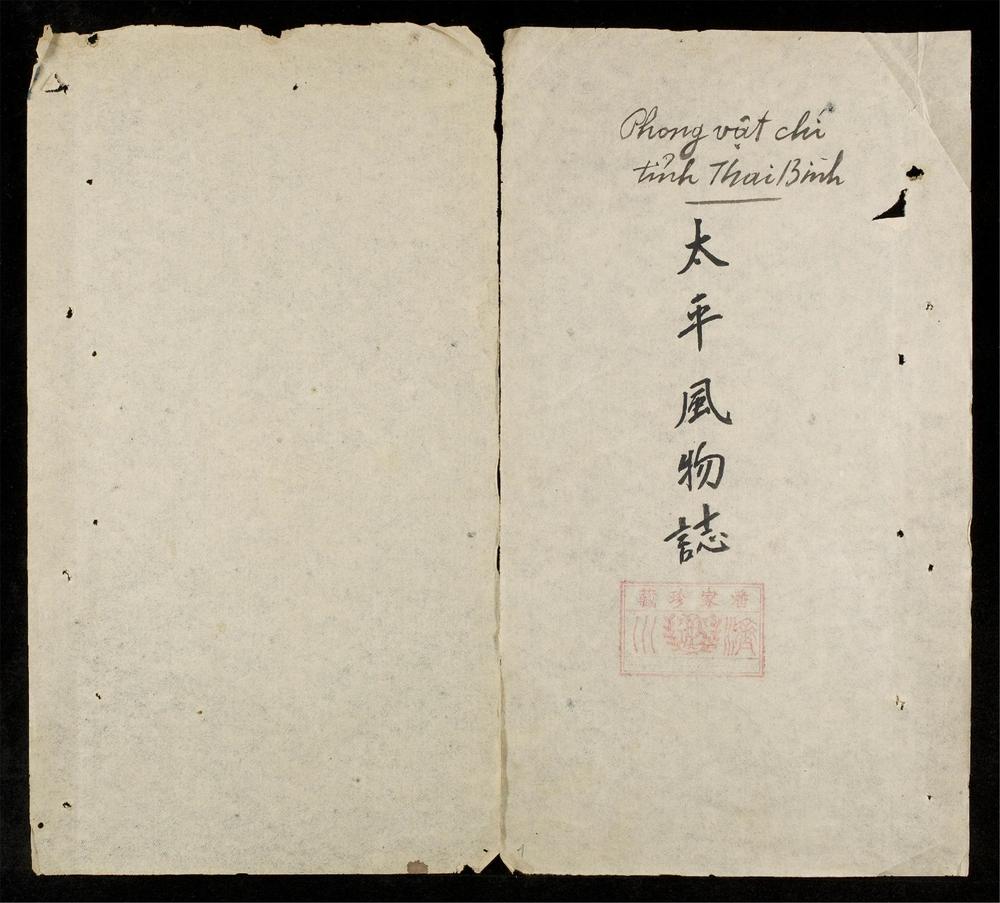 Phong vật chí
tỉnh Thai Binh
太平風物誌
潘家珍藏